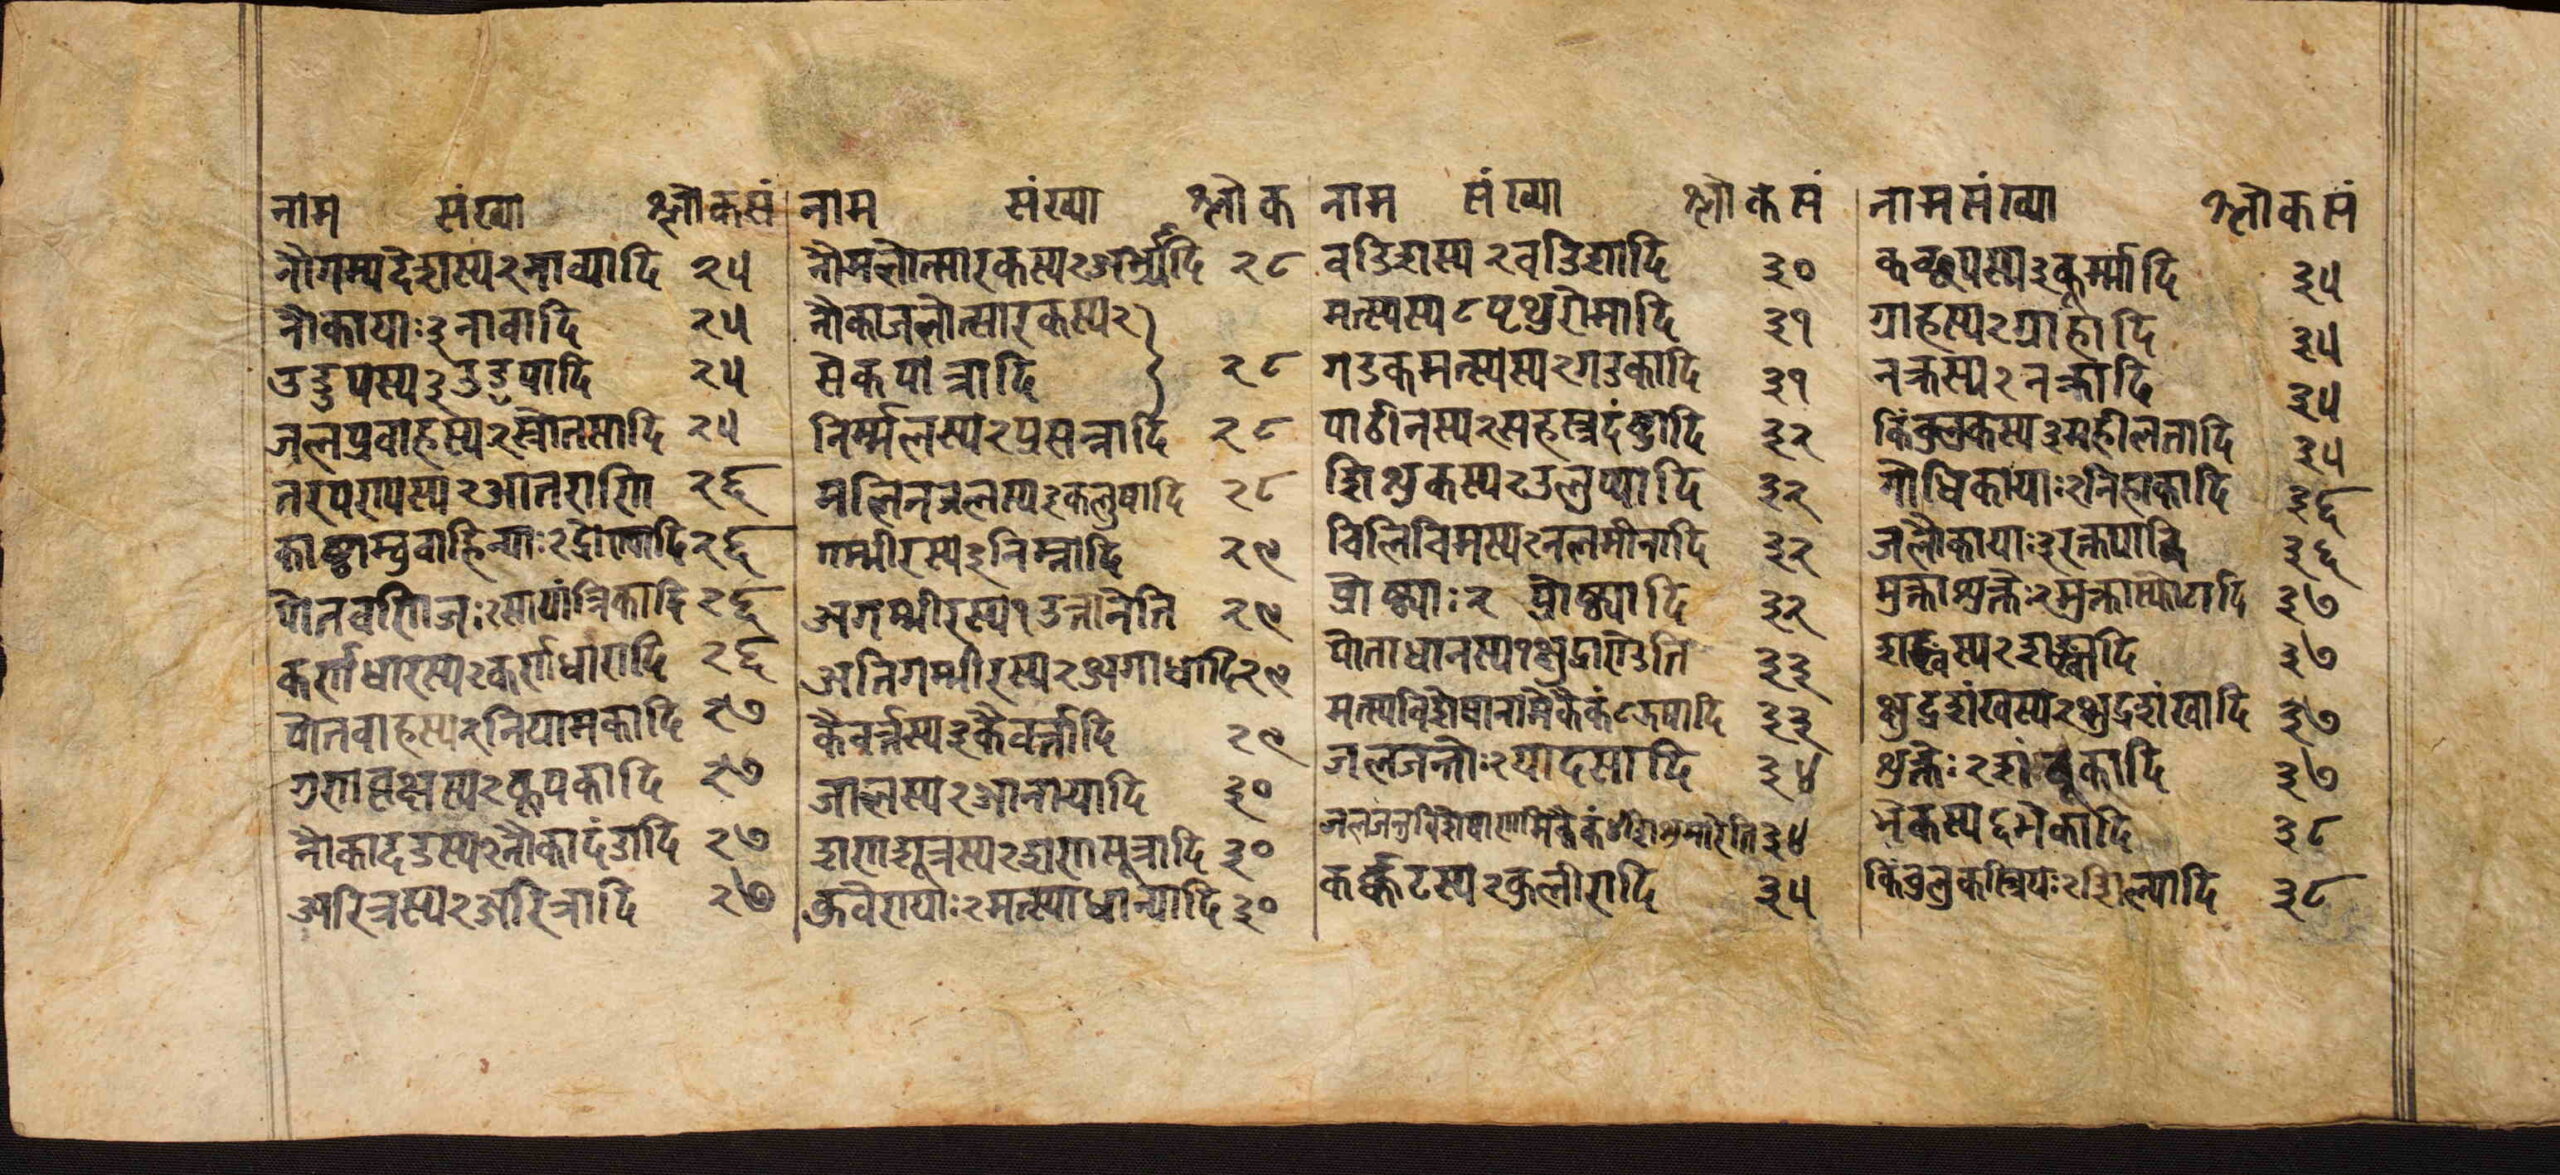 नाम संख्या श्लोकसं
नौगम्यदेशस्य२नाव्यादि २५
नौकायाः३नावादि २५
उडुपस्य३उडुपादि २५
जलप्रवाहस्य२स्त्रोतसादि २५
तरपरापस्य२आतराणि २६
काष्ठाम्बुवाहिन्याः२द्रोण्यादि २६
पोतवणिजः२सायांत्रिकादि २६
कर्णधारस्य२कर्णधारादि २६
पोतवाहस्य२नियामकादि २७
गुणवृक्षस्य२कूपकादि २७
नौकादडस्य२नौकादंडादि २७
अरित्रस्य२अरित्रादि २७
नाम संख्या श्लोक
नौमलोत्सारकस्य२अभ्र्यादि २८
नौकाजलोत्सारकस्य२
सेकपात्रादि २८
निर्म्मलस्य२प्रसन्नादि २८
मलिनजलस्य३कलुषादि २८
गम्भीरस्य३निम्नादि २९
अगम्भीरस्य१उत्तानेति २९
अतिगम्भीरस्य२अगाधादि २९
कैवर्त्तस्य३कैवर्त्तादि २९
जालस्य२आनायादि ३०
शणशूत्रस्य२शणसूत्रादि ३०
कुवेरायाः२मत्स्याधान्यादि ३०
नाम संख्या श्लोकसं
वडिशस्य२वडिशादि ३०
मत्स्यस्य८पृथुरोमादि ३१
गडकमत्स्यस्य२गडकादि ३१
पाठीनस्य२सहस्त्रदंष्ट्रादि ३२
शिशुकस्य२उलुप्यादि ३२
चिलिचिमस्य२नलमीनादि ३२
प्रोष्ठ्याः२ प्रोष्ठ्यादि ३२
पोताधानस्य१क्षुद्राण्डेति ३३
मत्स्यविशेषानामेकैकं८झषादि ३३
जलजन्तोः२यादसादि ३४
जलजन्तुविशेषाणामेकैकं४शिशुमारेति ३४
कर्क्कटस्य२कुलीरादि ३५
नाम संख्या श्लोकसं
कच्छपस्य३कूर्म्मादि ३५
ग्राहस्य२ग्राहादि ३५
नक्रस्य२नक्रादि ३५
किंचुलुकस्य३महीलतादि ३५
गोधिकायाः२निहाकादि ३६
जलौकायाः३रक्तपादि ३६
मुक्ताशुक्तेः२मुक्तास्फोटादि ३७
शङ्खस्य२शङ्खादि ३७
क्षुद्रशंखस्य२क्षुद्रशंखादि ३७
शुक्तेः२शंबूकादि ३७
भेकस्य६भेकादि ३८
किंचुलुकस्त्रियः२शिल्यादि ३८